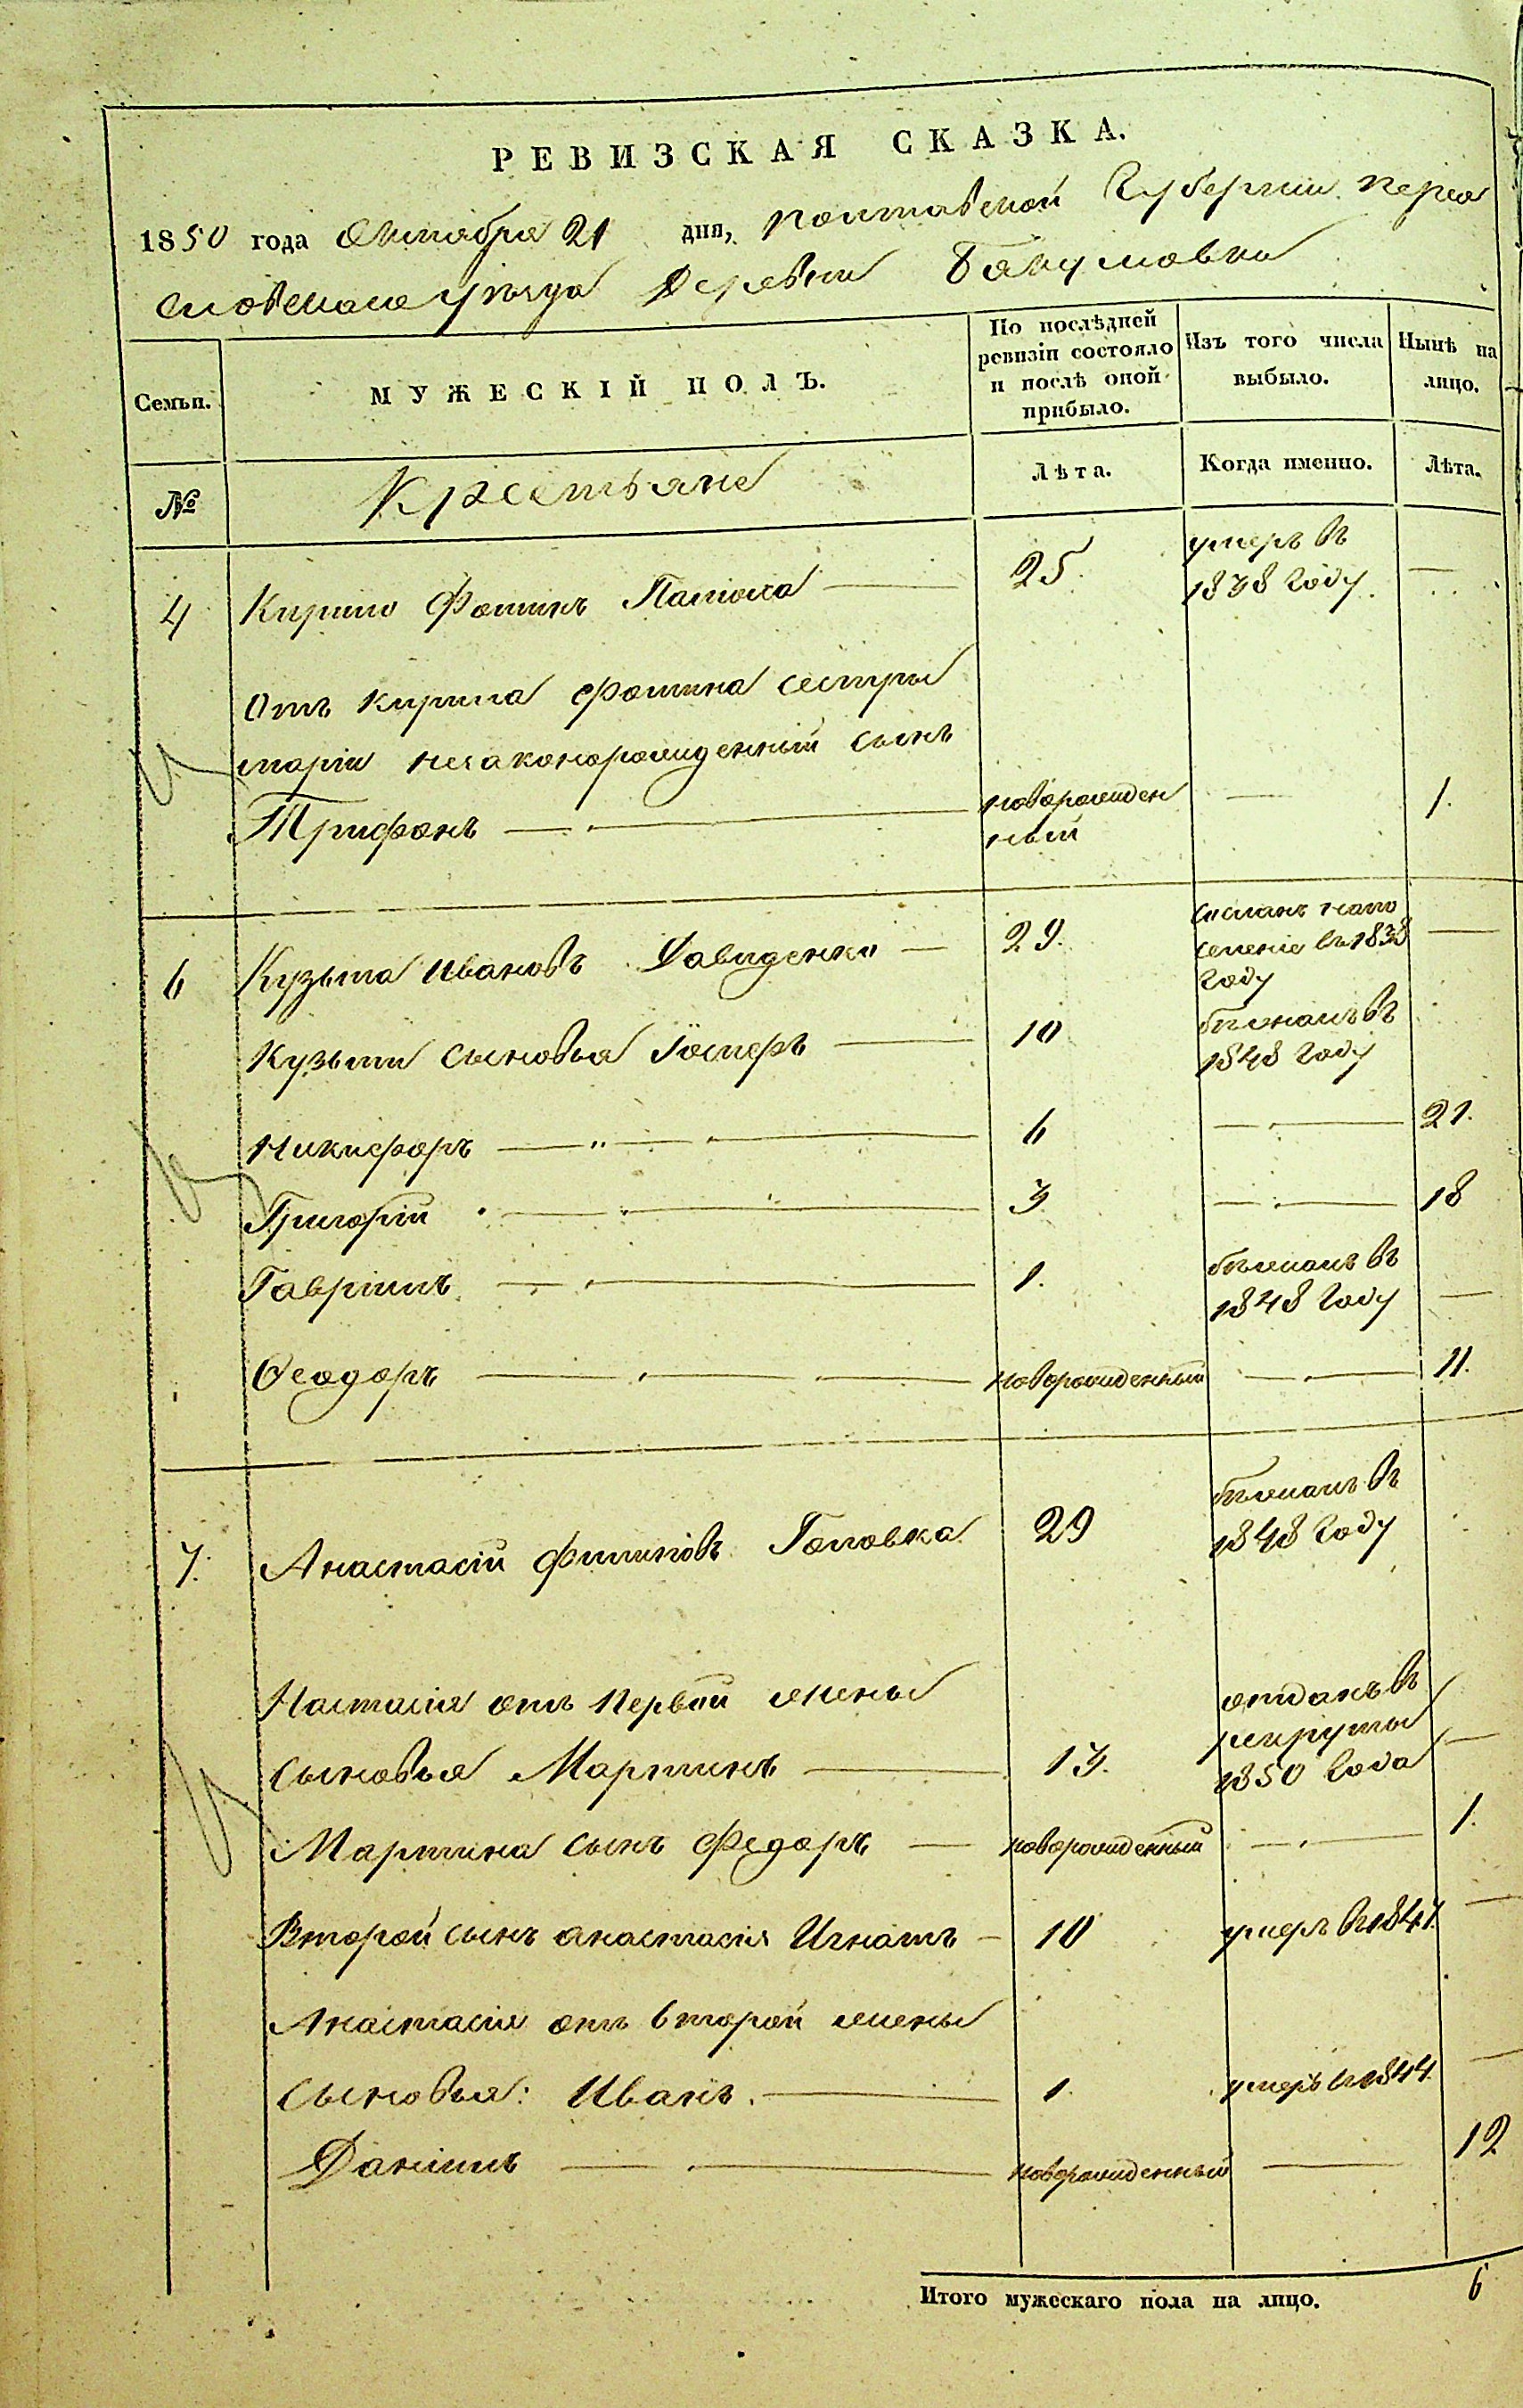 РЕВИЗСКАЯ СКАЗКА.
1850 года Октября 21 дня, Полтавской Губернии Переа
словскаго уѣзда Деревни Бакумовки
Семьи.
МУЖЕСКІЙ ПОЛЪ.
По послѣдней
ревизіи состояло
и послѣ оной
прибыло.
Изъ того числа
выбыло.
Нынѣ на
лицо.
№
Крестьяне
Лѣта.
Когда именно.
Лѣта.
4 Кирило Фоминъ 25. умеръ въ
1838 году. —
Отъ Кирила Фомина сестры
маріи незаконорожденный сынъ
Трифонъ — новорожден
ный — 1.
6 Кузьма Ивановъ Давиденко — 29. сосланъ напо
селеніе въ 1838 —
году
Кузьмы сыновья — 10 бѣжалъ въ
1848 году
Никифоръ — " — 6 — 21.
Григорій — 3 — 18
Гавріилъ — 1. бѣжалъ въ
1848 году —
Ѳеодоръ — новорожденный — 11.
7. Анастасій Филиповъ Головка 29 бѣжалъ въ
1848 году
Настасія отъ первой жены
сыновья Мартинъ — 13. отданъ въ
рекруты
1850 года —
Мартина сынъ Федоръ — новорожденный — 1.
Второй сынъ анастасія Игнатъ — 10 умеръ въ 1847. —
Анастасія отъ второй жены
сыновья: Иванъ. — 1. умеръ въ 1844. —
Даніилъ — новорожденный — 12
Итого мужескаго пола на лицо. 6